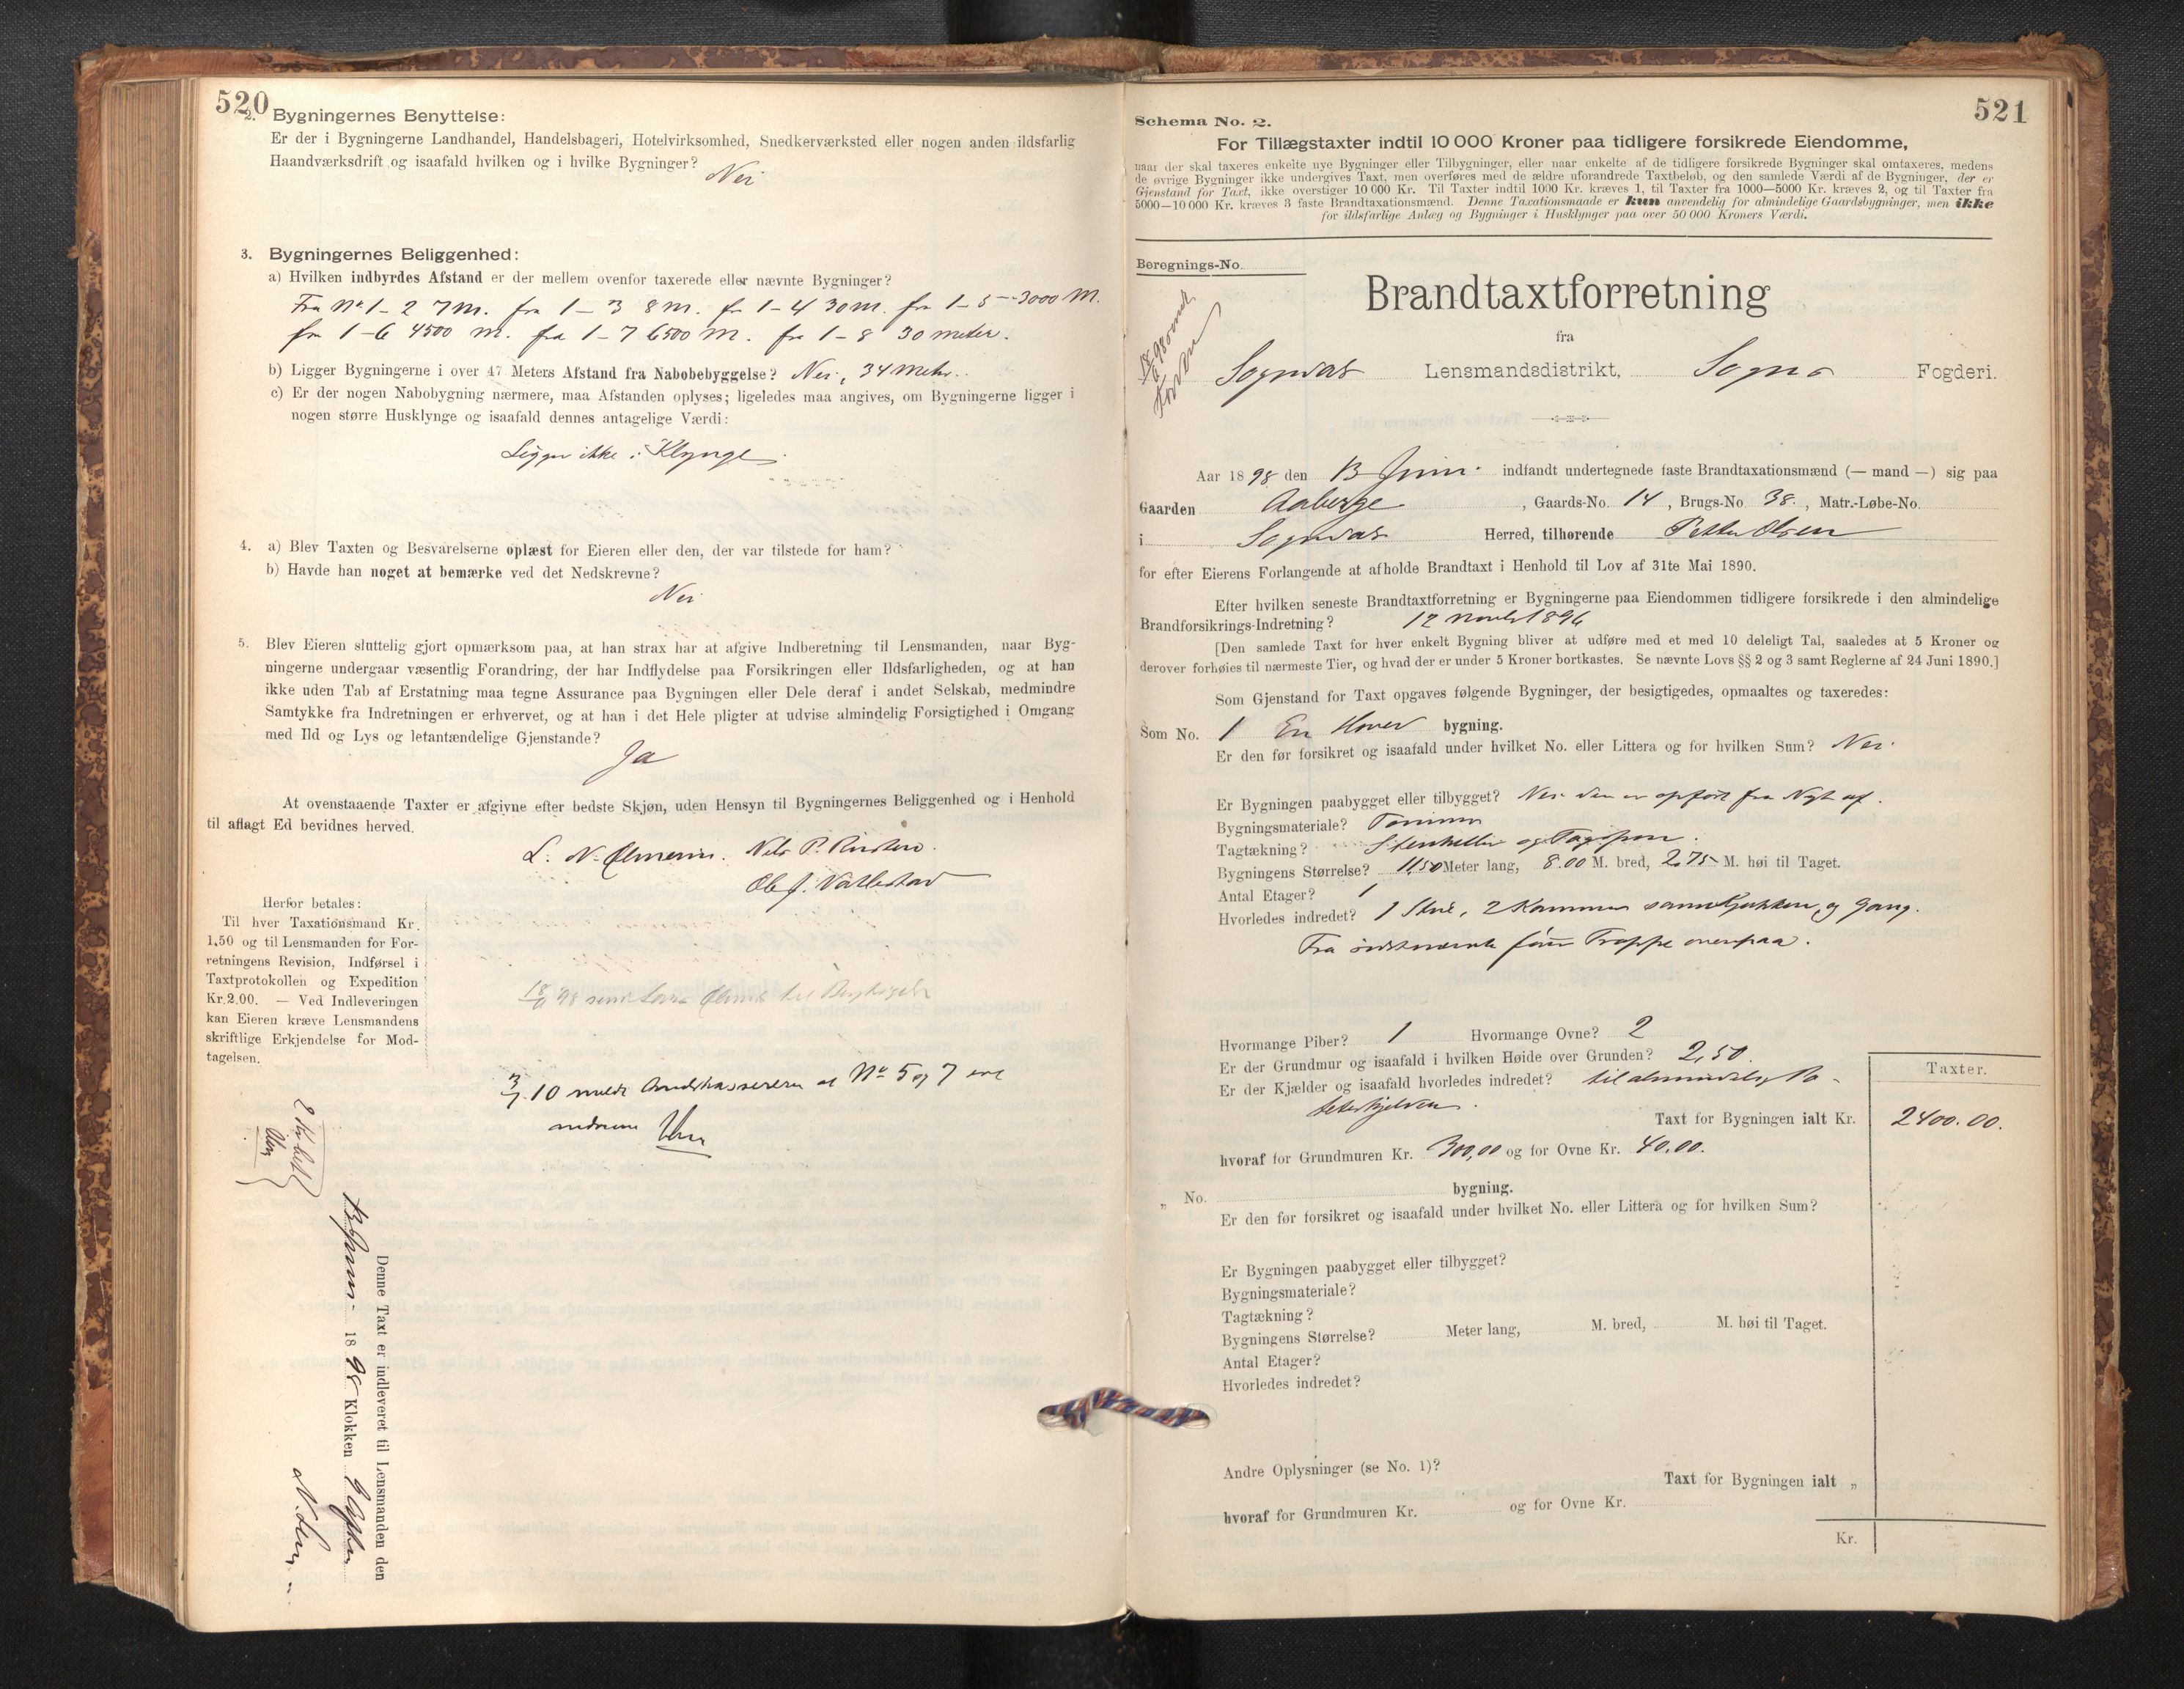 520
2. Bygningernes Benyttelse:
Er der i Bygningerne Landhandel, Handelsbageri, Hotelvirksomhed, Snedkerværksted eller nogen anden ildsfarlig
Haandværksdrift og isaafald hvilken og i hvilke Bygninger?
Nei
3. Bygningernes Beliggenhed:
a) Hvilken indbyrdes Afstand er der mellem ovenfor taxerede eller nævnte Bygninger?
Fra No 1-2 7 M. fra 1-3 8 M. fra 1-4 30 M. fra 1-5 3000 M.
fra 1-6 4500 M. fra 1-7 6500 M. fra 1-8 30 meter.
b) Ligger Bygningerne i over 47 Meters Afstand fra Nabobebyggelse? Nei, 34 Meter.
c) Er der nogen Nabobygning nærmere, maa Afstanden oplyses; ligeledes maa angives, om Bygningerne ligger i
nogen større Husklynge og isaafald dennes antagelige Værdi:
Ligger ikke i Klynge.
4. a) Blev Taxten og Besvarelserne oplæst for Eieren eller den, der var tilstede for ham?
b) Havde han noget at bemærke ved det Nedskrevne?
Nei
5. Blev Eieren sluttelig gjort opmærksom paa, at han strax har at afgive Indberetning til Lensmanden, naar Byg-
ningerne undergaar væsentlig Forandring, der har Indflydelse paa Forsikringen eller Ildsfarligheden, og at han
ikke uden Tab af Erstatning maa tegne Assurance paa Bygningen eller Dele deraf i andet Selskab, medmindre
Samtykke fra Indretningen er erhvervet, og at han i det Hele pligter at udvise almindelig Forsigtighed i Omgang
med Ild og Lys og letantændelige Gjenstande?
Ja
At ovenstaaende Taxter er afgivne efter bedste Skjøn, uden Hensyn til Bygningernes Beliggenhed og i Henhold
til aflagt Ed bevidnes herved.
L. N. Nils P.
Ole J.
Herfor betales:
Til hver Taxationsmand Kr.
1,50 og til Lensmanden for For-
retningens Revision, Indførsel i
Taxtprotokollen og Expedition
Kr. 2.00. — Ved Indleveringen
kan Eieren kræve Lensmandens
skriftlige Erkjendelse for Mod-
tagelsen.
No 5 og 7
Denne Taxt er indleveret til Lensmanden den
Juni 1898 Klokken
521
Schema No. 2.
For Tillægstaxter indtil 10 000 Kroner paa tidligere forsikrede Eiendomme,
naar der skal taxeres enkelte nye Bygninger eller Tilbygninger, eller naar enkelte af de tidligere forsikrede Bygninger skal omtaxeres, medens
de øvrige Bygninger ikke undergives Taxt, men overføres med de ældre uforandrede Taxtbeløb, og den samlede Værdi af de Bygninger, der er
Gjenstand for Taxt, ikke overstiger 10 000 Kr. Til Taxter indtil 1000 Kr. kræves 1, til Taxter fra 1000—5000 Kr. kræves 2, og til Taxter fra
5000—10 000 Kr. kræves 3 faste Brandtaxationsmænd. Denne Taxationsmaade er kun anvendelig for almindelige Gaardsbygninger, men ikke
for ildsfarlige Anlæg og Bygninger i Husklynger paa over 50 000 Kroners Værdi.
Beregnings-No.
Brandtaxtforretning
fra
Sogndals Lensmandsdistrikt, Sogns Fogderi.
Aar 1898 den 13 Juni indfandt undertegnede faste Brandtaxationsmænd (— mand —) sig paa
Gaarden Aaberge, Gaards-No. 14, Brugs-No. 38., Matr.-Løbe-No.
i Sogndals Herred, tilhørende Petter Olsen
for efter Eierens Forlangende at afholde Brandtaxt i Henhold til Lov af 31te Mai 1890.
Efter hvilken seneste Brandtaxtforretning er Bygningerne paa Eiendommen tidligere forsikrede i den almindelige
Brandforsikrings-Indretning? 12
[Den samlede Taxt for hver enkelt Bygning bliver at udføre med et med 10 deleligt Tal, saaledes at 5 Kroner og
derover forhøies til nærmeste Tier, og hvad der er under 5 Kroner bortkastes. Se nævnte Lovs §§ 2 og 3 samt Reglerne af 24 Juni 1890.]
Som Gjenstand for Taxt opgaves følgende Bygninger, der besigtigedes, opmaaltes og taxeredes:
Som No. 1 En Hoved bygning.
Er den før forsikret og isaafald under hvilket No. eller Littera og for hvilken Sum? Nei
Er Bygningen paabygget eller tilbygget? Nei den er opført fra Nyt af.
Bygningsmateriale? Tømmer
Tagtækning? Stenheller og Tagspon.
Bygningens Størrelse? 11,50 Meter lang, 8.00 M. bred, 2,75 M. høi til Taget.
Antal Etager? 1
Hvorledes indredet? 1 Stue, 2 Kammer samt Kjøkken og Gang.
Fra sidstnævnte fører Trappe ovenpaa.
Hvormange Piber? 1 Hvormange Ovne? 2
Er der Grundmur og isaafald i hvilken Høide over Grunden? 2,50.
Er der Kjælder og isaafald hvorledes indredet? til almindelig Po-
tetkjelder.
Taxter.
Taxt for Bygningen ialt Kr. 2400.00.
hvoraf for Grundmuren Kr. 300,00 og for Ovne Kr. 40.00.
„ No. bygning.
Er den før forsikret og isaafald under hvilket No. eller Littera og for hvilken Sum?
Er Bygningen paabygget eller tilbygget?
Bygningsmateriale?
Tagtækning?
Bygningens Størrelse? Meter lang, M. bred, M. høi til Taget.
Antal Etager?
Hvorledes indredet?
Andre Oplysninger (se No. 1)?
Taxt for Bygningen ialt „
hvoraf for Grundmuren Kr. og for Ovne Kr.
Kr.